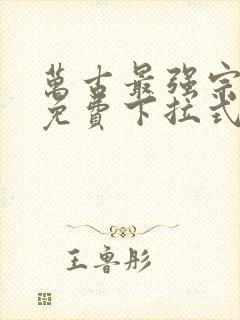 萬古最强宗
免費下拉式
王魯彤